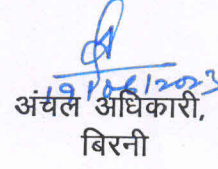 19/06/2023
अंचल अधिकारी,
बिरनी